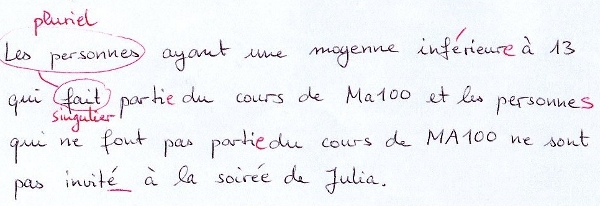 pluriel
Les personnes ayant une moyenne inférieure à 13
qui fait partie du cours de Ma100 et les personnes
singulier
qui ne font pas partie du cours de MA100 ne sont
pas invité à la soirée de Julia.